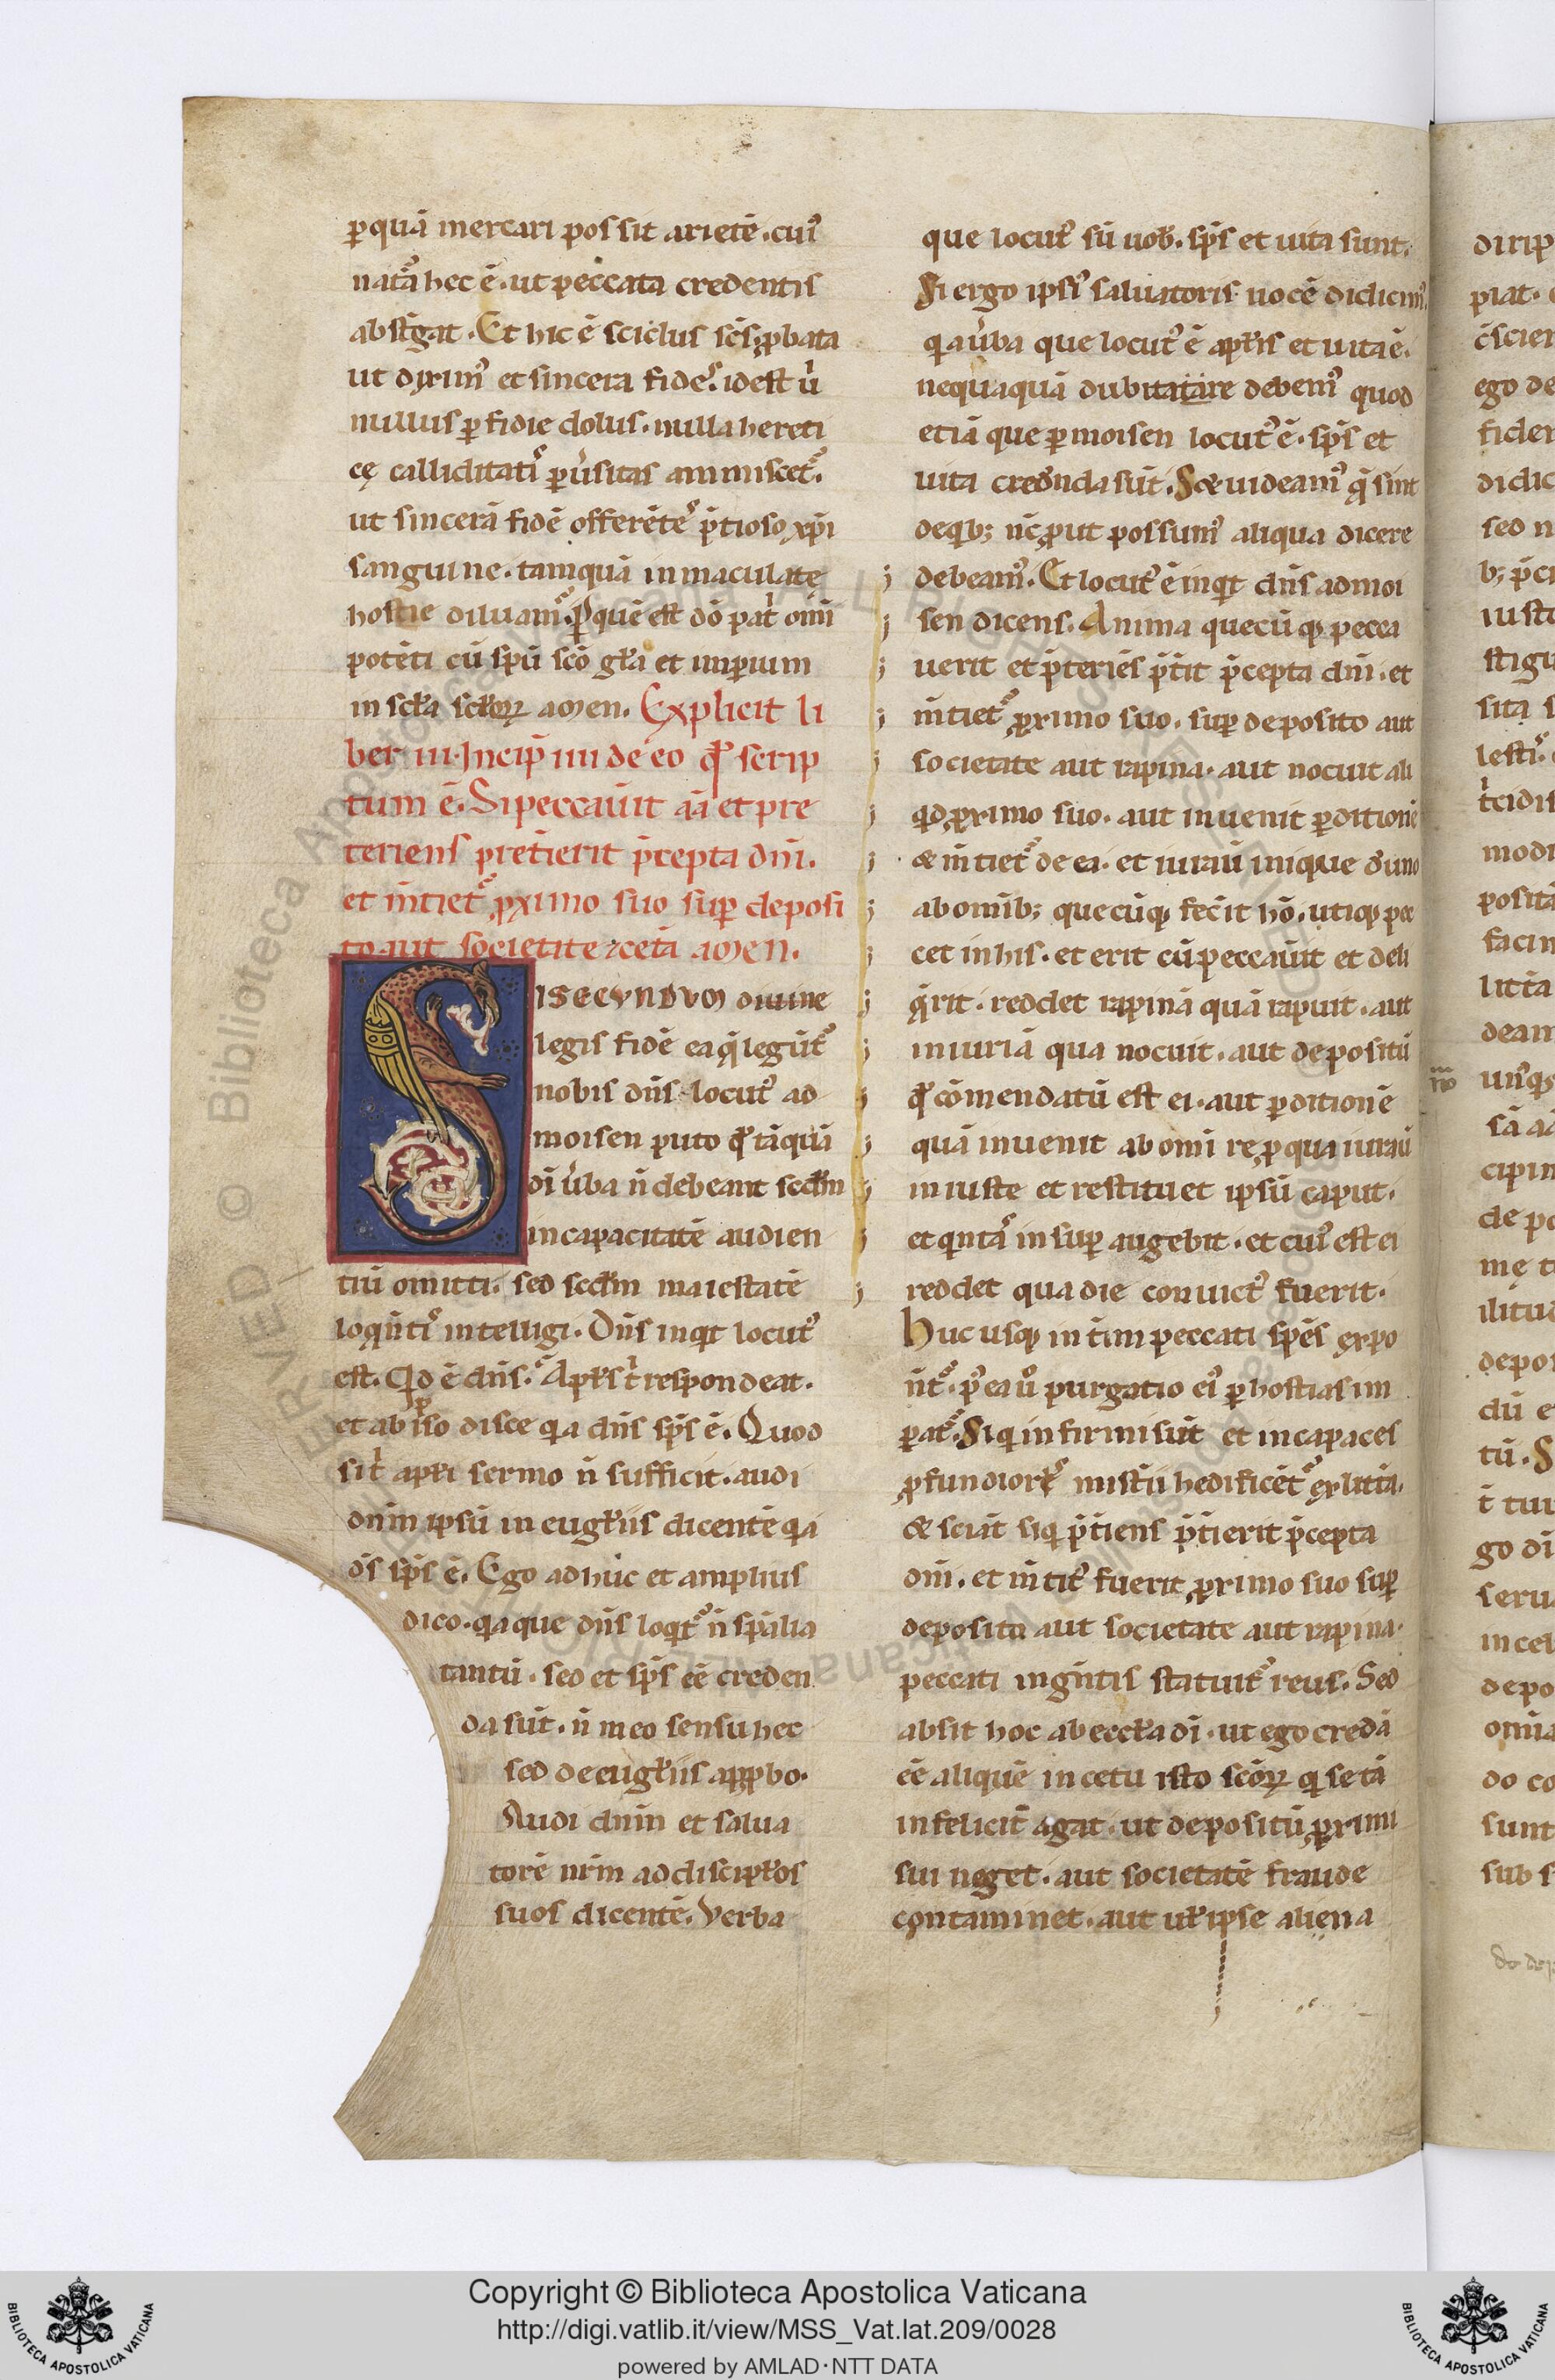 ꝑquā mercari possit arietē. cuiꝰ
natᷓa hec ē. ut peccata credentis
abstᷓgat. Et hic ē sciclus sc̄s ꝓbata
ut dixim᷒ et sincera fides. idest u̍
nullus ꝑfidie dolus. nulla hereti
cę calliditatis ꝑu̍sitas ammiscet᷒.
ut sincerā fidē offerētes p̄tioso xp̄i
sanguine. tamquā inmaculatę
hostie diluam᷒. ꝑ quē est dō pat̍ om̄i
potēti cū sp̄u sc̄o gl̄a et imꝑium
in scl̄a scl̄oꝝ amen. Explicit li
ber iii. Incip̄ iiii de eo qđ scrip
tum ē. Si peccau̍it aīa et pre
teriens pret̍ierit p̄cepta dn̄i.
et m̄tiet᷒ ꝓximo suo suꝑ deposi
to aut societate ⁊ cet̍a amen.
Si secundum diuine
legis fidē ea q̄ legūt᷒
nobis dn̄s locut᷒ ad
moisen puto qđ tāquā
dī u̍ba n̄ debeant scdm̄
incapacitatē audien
tiū omitti. sed scdm̄ maiestatē
loq̄ntis intelligi. Dn̄s inqt locut᷒
est. Qd ē dn̄s. Apl̄s t̍ respondeat.
et ab ipso disce qa dn̄s sp̄s ē. Quod
si t̍ apl̄i sermo n̄ sufficit. audi
dn̄m ipsū in eugl̄iis dicentē qa
ds̄ sp̄s ē. Ego adhuc et amplius
dico. qa que dn̄s loqt᷒ n̄ sp̄alia
tantū. sed et sp̄s eē creden
da sūt. n̄ meo sensu hec
sed de eugl̄iis apꝓbo.
Audi dn̄m et salua
torē nr̄m ad discipl̄os
suos dicentē. Verba
que locut᷒ sū uob̄. sp̄s et uita sunt.
Si ergo ipsi᷒ saluatoris uocē didicim᷒
qa u̍ba que locut᷒ ē apl̄is et uita ē.
nequaquā dubitatare debem᷒ quod
etiā que ꝑ moisen locut᷒ ē. sp̄s et
uita credenda sūt. S; & uideam᷒ q̄ sint
de qb; nc̄ ꝓut possum᷒ aliqua dicere
debeam᷒. Et locut᷒ ē inqt dn̄s ad moi
sen dicens. Anima quecūq; pecca
uerit et p̄teriēs p̄t̍it p̄cepta dn̄i. et
m̄tiet᷒ ꝓximo suo. suꝑ deposito aut
societate aut rapina. aut nocuit ali
qd ꝓximo suo. aut inuenit ꝑditionē
& m̄tiet᷒ de ea. et iurau̍ inique de uno
ab omīb; quecūq; fecit hō. utiq; pec
cet in his. et erit cū peccau̍it et deli
q̄rit. reddet rapinā quā rapuit. aut
iniuriā qua nocuit. aut depositū
qđ cōmendatū est ei. aut ꝑditionē
quā inuenit ab omī re ꝓ qua iurau̍
iniuste et restituet ipsū caput.
et qntā insuꝑ augebit. et cui᷒ est ei
reddet qua die conuict᷒ fuerit.
Huc usq; int̍im peccati sp̄es expo
nt᷒. p᷒ ea u̍o purgatio ei᷒ ꝑ hostias im
ꝑat᷒. Si q infirmi sūt et incapaces
ꝓfundiorꝝ mist̍ii hedificēt᷒ ex litt̍a.
& sciāt si q p̄t̍iens p̄t̍ierit p̄cepta
dn̄i. et m̄tit᷒ fuerit ꝓximo suo suꝑ
deposito aut societate aut rapina.
peccati ingn̄tis statuit᷒ reus. Sed
absit hoc ab eccl̄a dī. ut ego credā
eē aliquē in cetu isto sc̄oꝝ q se tā
infelicit̍ agat. ut depositū ꝓximi
sui neget. aut societatē fraude
contaminet. aut ul̄ ipse aliena
Copyright © Biblioteca Apostolica Vaticana
http://digi.vatlib.it/view/MSS_Vat.lat.209/0028
powered by AMLAD·NTT DATA
BIBLIOTECA APOSTOLICA VATICANA
BIBLIOTECA APOSTOLICA VATICANA